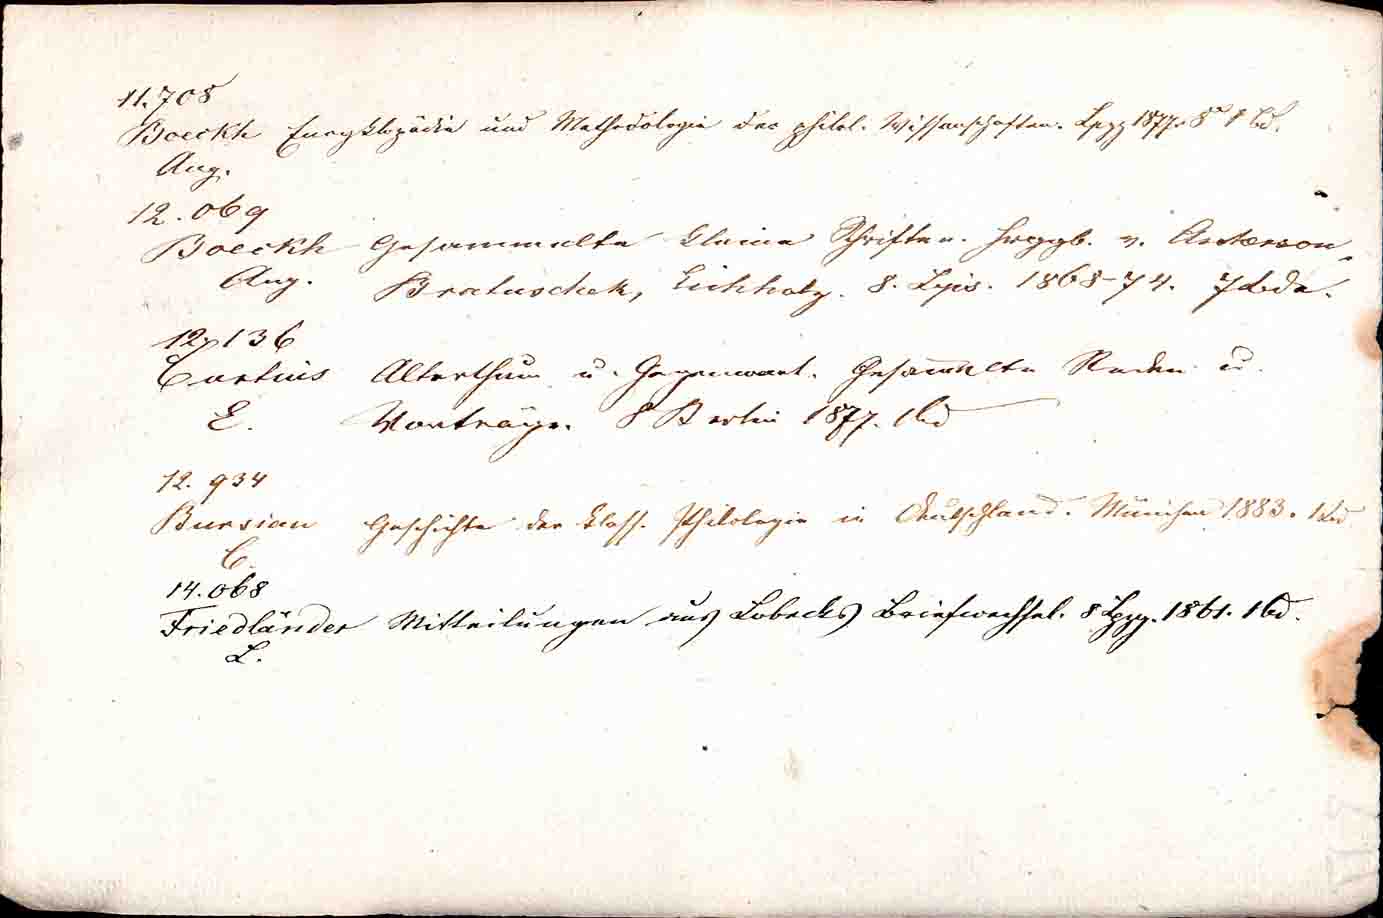 11.708
Boeckh Encyklopädie und Methodologie der philol. Wissenschaften. Lpzg 1877. 8° 1 Bd.
Aug.
12.069
Boeckh Gesammelte kleine Schriften. Hrsggb. v. Ascherson,
Aug. Bratuschek, Eichholtz. 8. Lpis. 1868-74. 7 Bde.
12,136
Curtius Alterthum u. Gegenwart. Gesammelte Reden u.
E. Vorträge. 8 Berlin 1877. 1 Bd
12.934
Bursian Geschichte der klass. Philologie in Deutschland. München 1883. 1 Bd
C.
14.068
Friedländer Mitteilungen aus Lobecks Briefwechsel. 8 Lpzg. 1861. 1 Bd.
L.